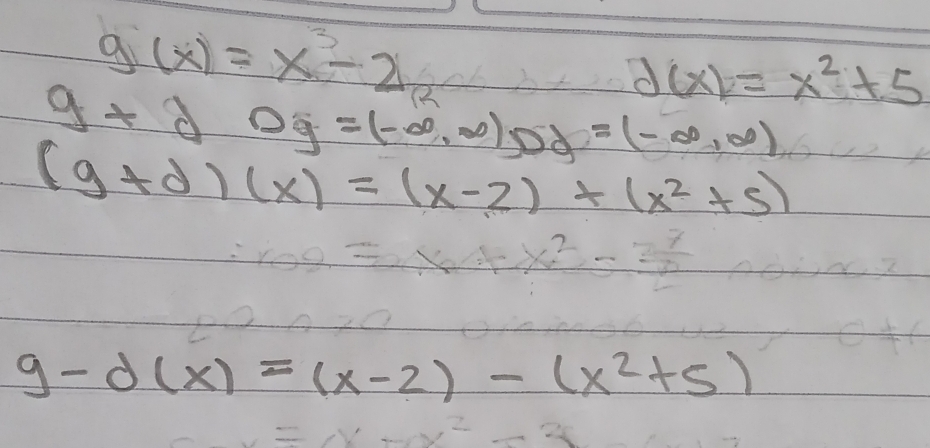 g(x) = x³ - 2 d(x) = x² + 5
g + d Dg = (-∞, ∞), Dd = (-∞, ∞)
(g + d)(x) = (x - 2) + (x² + 5)
= x + x² -
g - d(x) = (x - 2) - (x² + 5)